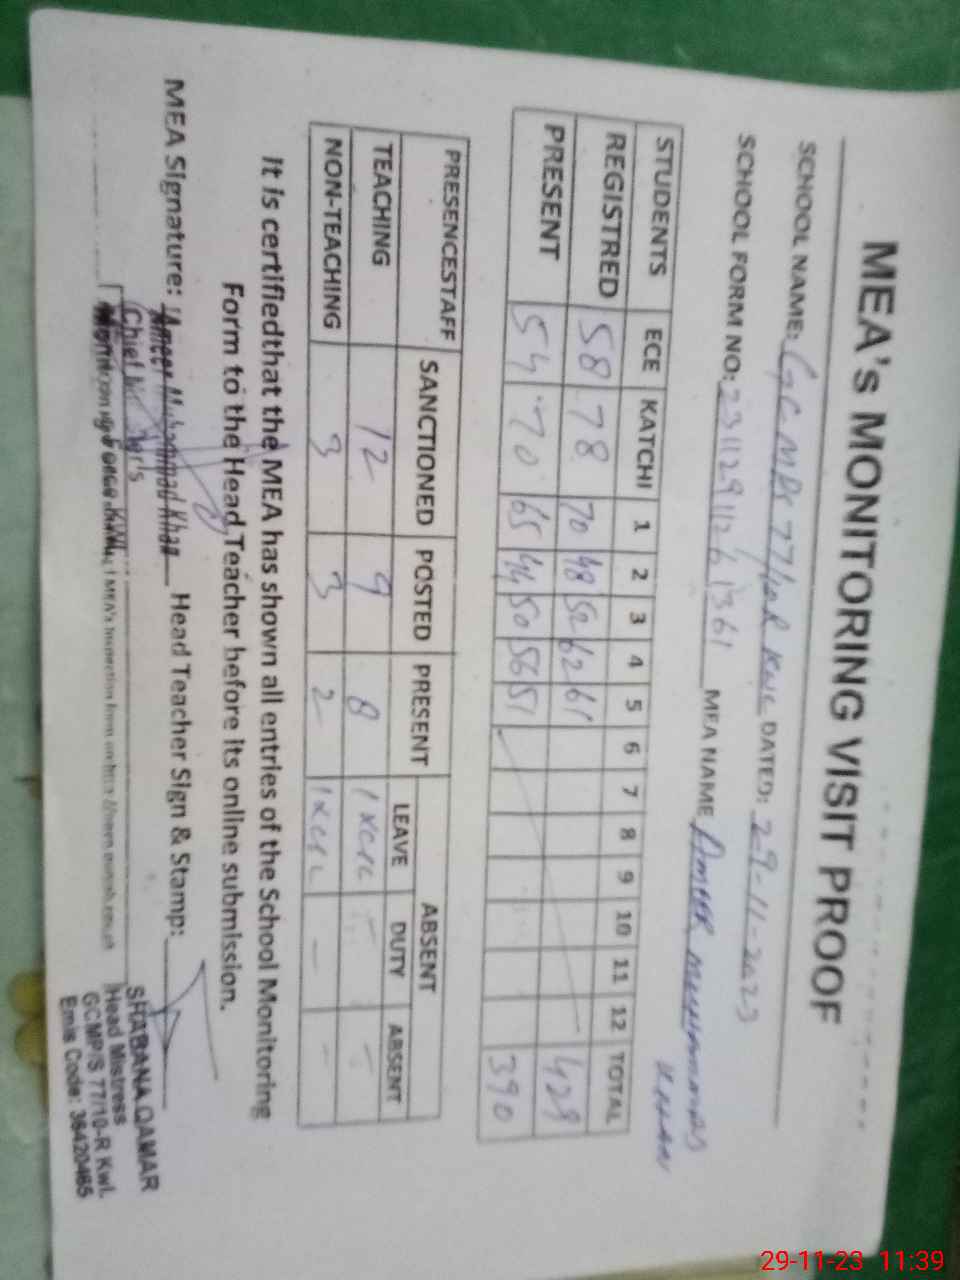 MEA's MONITORING VISIT PROOF
SCHOOL NAME: GCMPS 77/10R KWL DATED: 29-11-2023
SCHOOL FORM NO: 23112911261361 MEA NAME AMEER MUHAMMAD KHAN
STUDENTS ECE KATCHI 1 2 3 4 5 6 7 8 9 10 11 12 TOTAL
REGISTRED 58 78 70 48 52 62 61 429
PRESENT 54 70 65 44 50 56 51 390
PRESENCESTAFF SANCTIONED POSTED PRESENT ABSENT
LEAVE DUTY ABSENT
TEACHING 12 9 8 1 - -
NON-TEACHING 3 3 2 1 - -
It is certifiedthat the MEA has shown all entries of the School Monitoring
Form to the Head Teacher before its online submission.
MEA Signature: Ameer Muhammad Khan Head Teacher Sign & Stamp:
SHABANA QAMAR
Head Mistress
GCMP/S 77/10-R Kwl.
Emis Code: 36420465
29-11-23 11:39